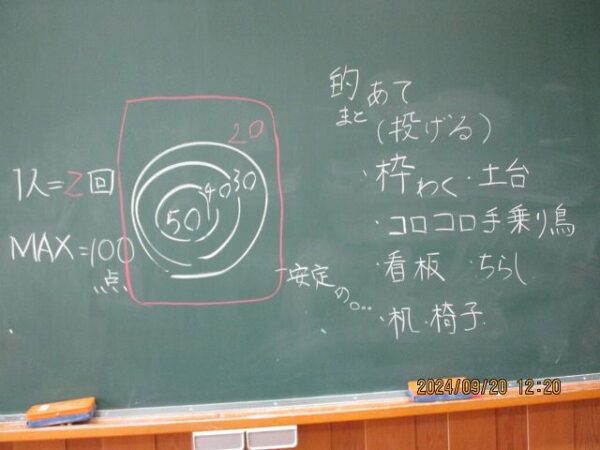 1人=2回
MAX=100
点
20
30
40
50
安定
の。…
的あて
まと
(投げる)
・枠わく・土台
・コロコロ手乗り鳥
・看板 ・ちらし
・机・椅子
2024/09/20 12:20